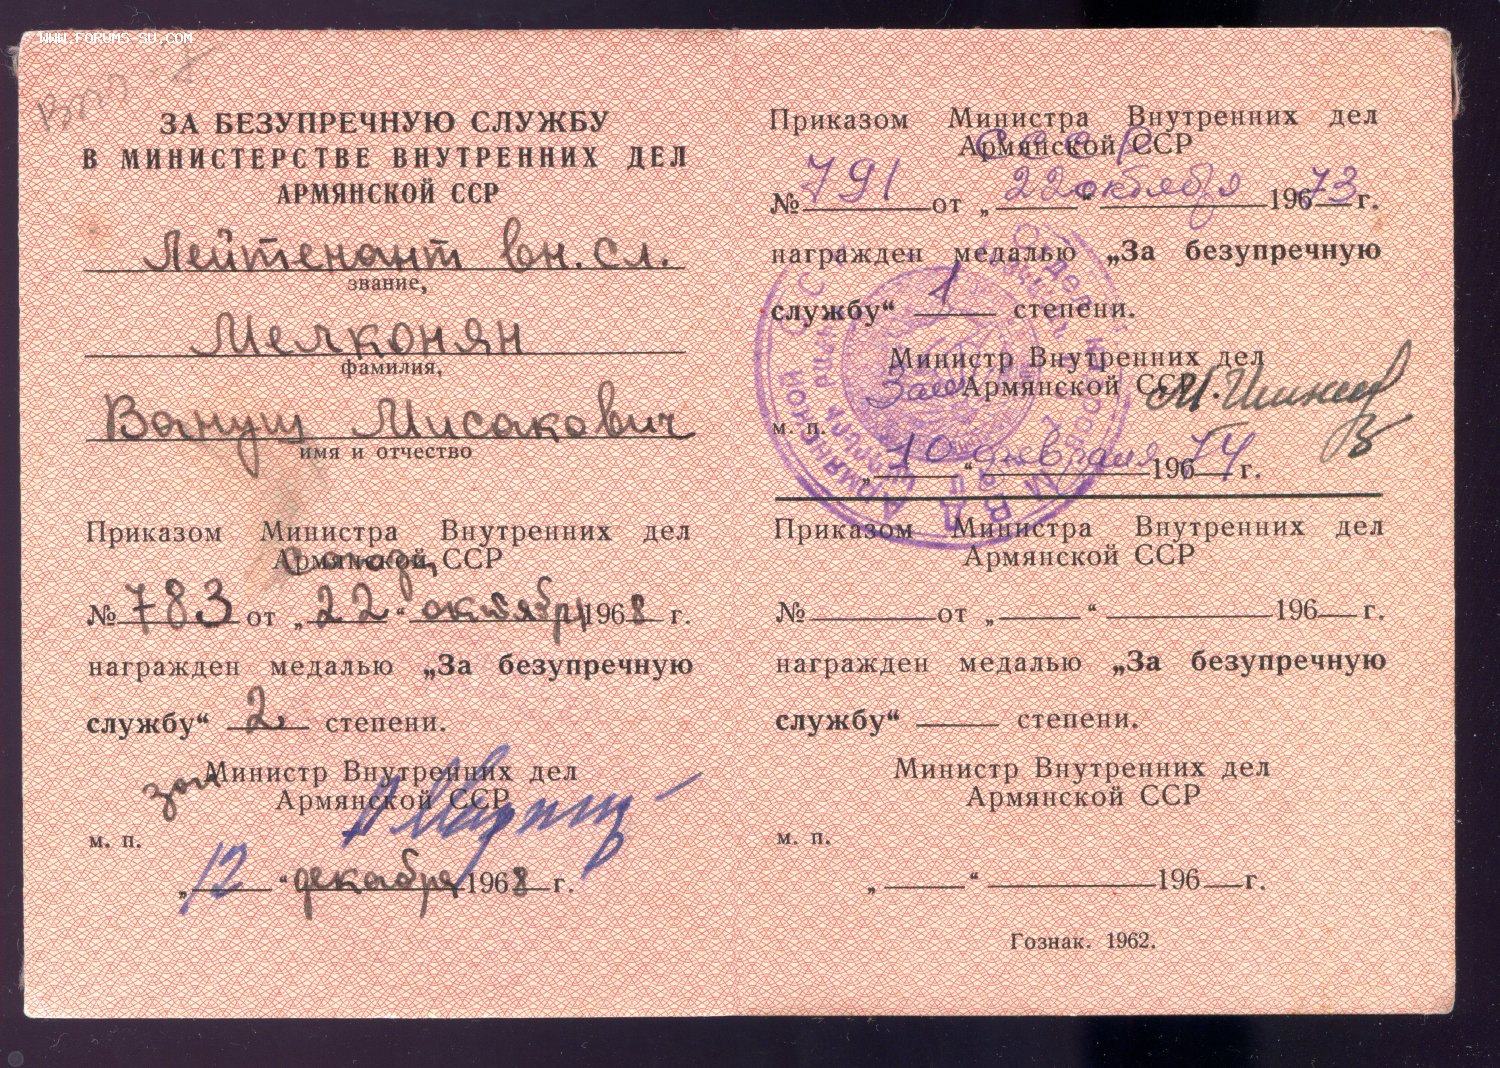 WWW.FORUMS-SU.COM
ЗА БЕЗУПРЕЧНУЮ СЛУЖБУ
В МИНИСТЕРСТВЕ ВНУТРЕННИХ ДЕЛ
АРМЯНСКОЙ ССР
Лейтенант вн. сл.
звание,
Мелконян
фамилия,
Вануш Мисакович
имя и отчество
Приказом Министра Внутренних дел
Армянской ССР
№ 783 от „22“ октября 1968 г.
награжден медалью „За безупречную
службу“ 2 степени.
зам Министр Внутренних дел
Армянской ССР
м. п.
„12“ декабря 1968 г.
Приказом Министра Внутренних дел
Армянской ССР
СССР
№ 791 от „22“ октября 19673 г.
награжден медалью „За безупречную
службу“ 1 степени.
Министр Внутренних дел
Зам Армянской ССР
м. п.
„10“ февраля 19674 г.
Приказом Министра Внутренних дел
Армянской ССР
№ от „ “ 196 г.
награжден медалью „За безупречную
службу“ степени.
Министр Внутренних дел
Армянской ССР
м. п.
„ “ 196 г.
Гознак. 1962.